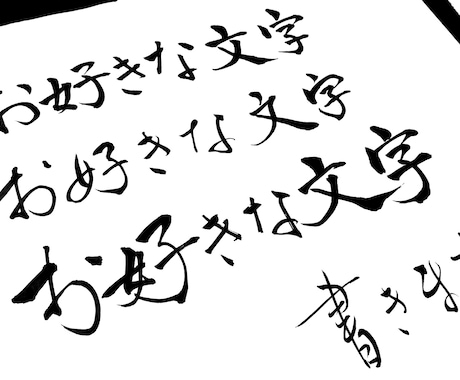 お好きな文字
お好きな文字
お好きな文字
書きま